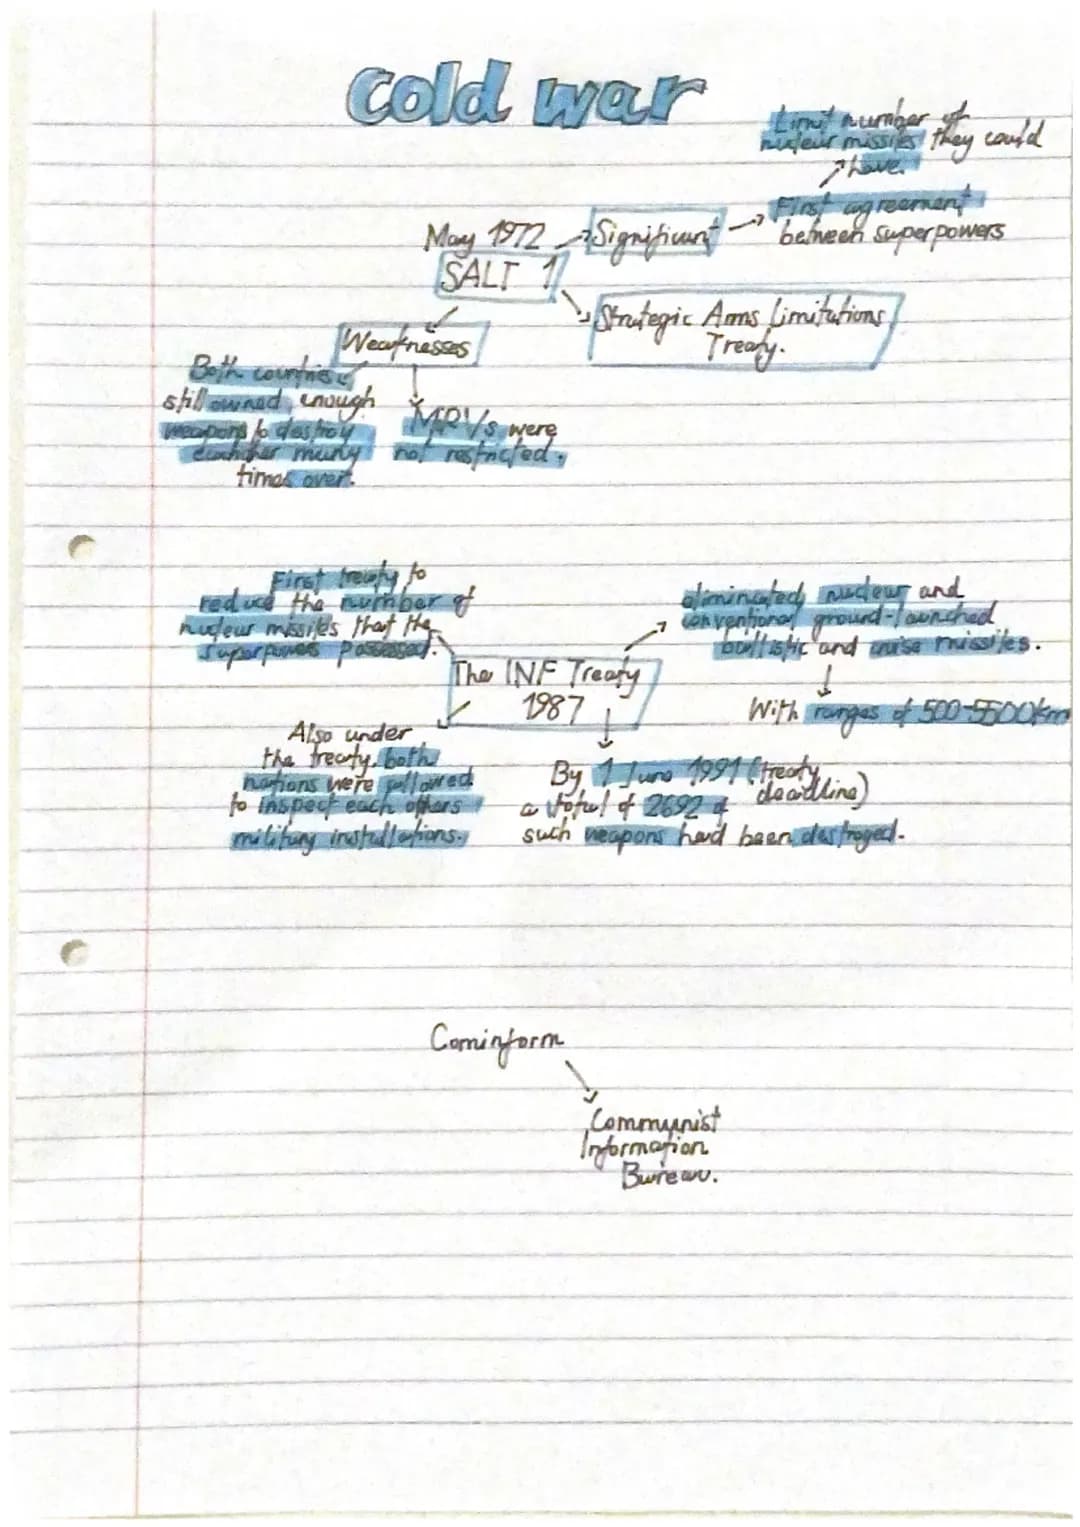 Cold war
Limit number of
nuclear missiles they could
have.
May 1972
Significant
First agreement
between superpowers
SALT 1
Strategic Arms Limitations
Treaty.
Weaknesses
Both countries
still owned enough
weapons to destroy
eachother many
times over.
MIRVs were
not restricted.
First treaty to
reduce the number of
nuclear missiles that the
superpowers possessed.
eliminated nuclear and
conventional ground-launched
ballistic and cruise missiles.
With ranges of 500-5500km
The INF Treaty
1987
Also under
the treaty, both
nations were allowed
to inspect each others
military installations.
By 1 June 1991 (treaty
deadline)
a total of 2692 of
such weapons had been destroyed.
Cominform
Communist
Information
Bureau.